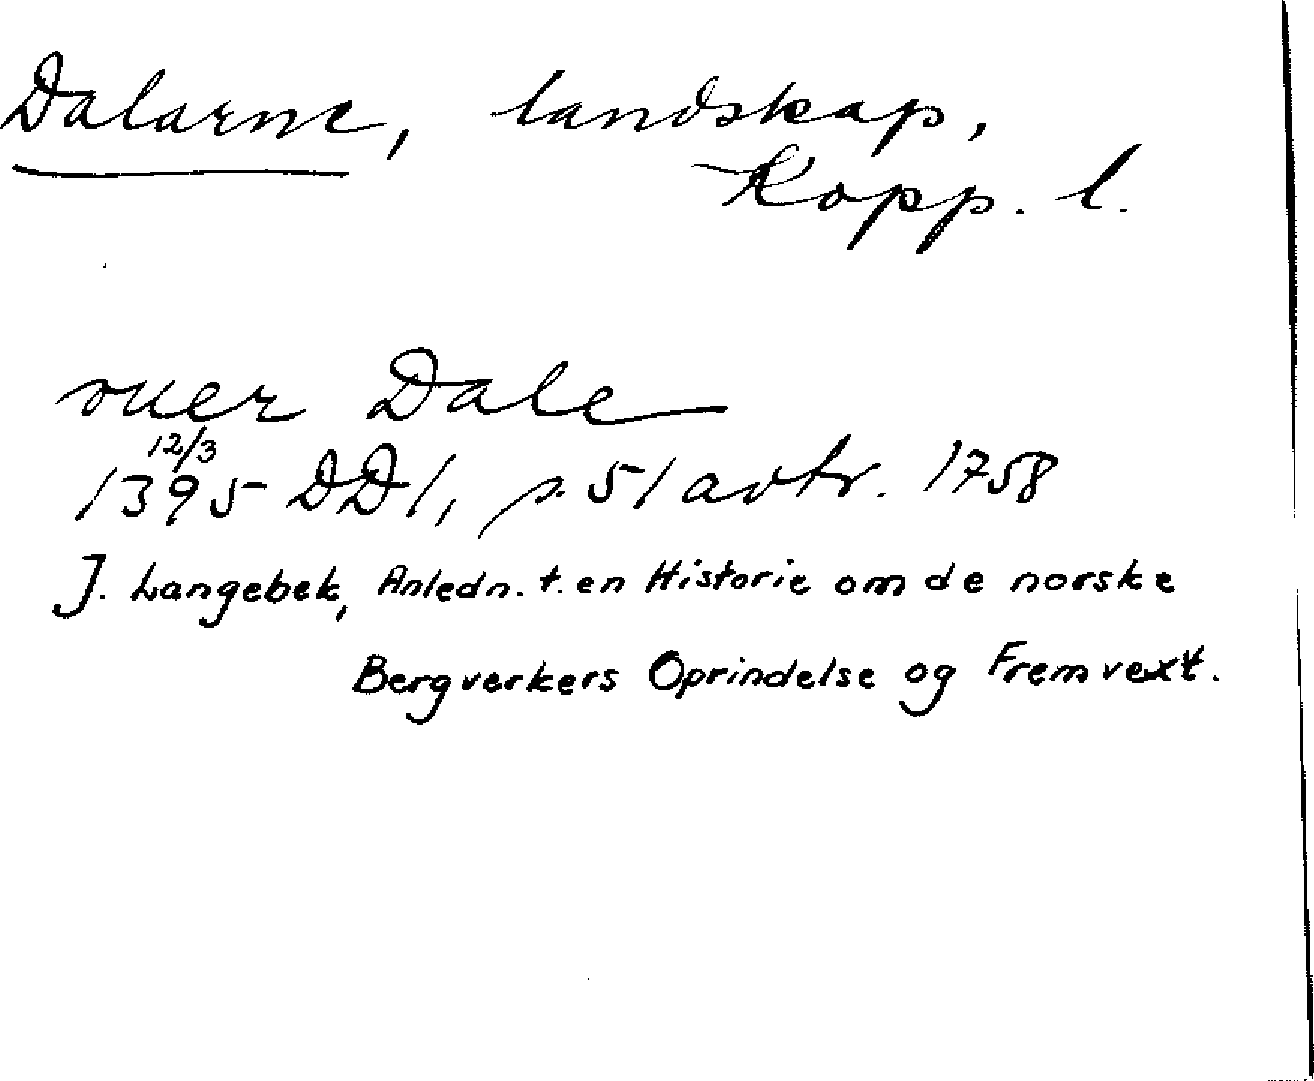 Dalarne, landskap,
Kopp. l.
ouer Dale
12/3
1395 DD1, s. 51 avtr. 1758
J. Langebek, Anledn. t. en Historie om de norske
Bergverkers Oprindelse og Fremvext.